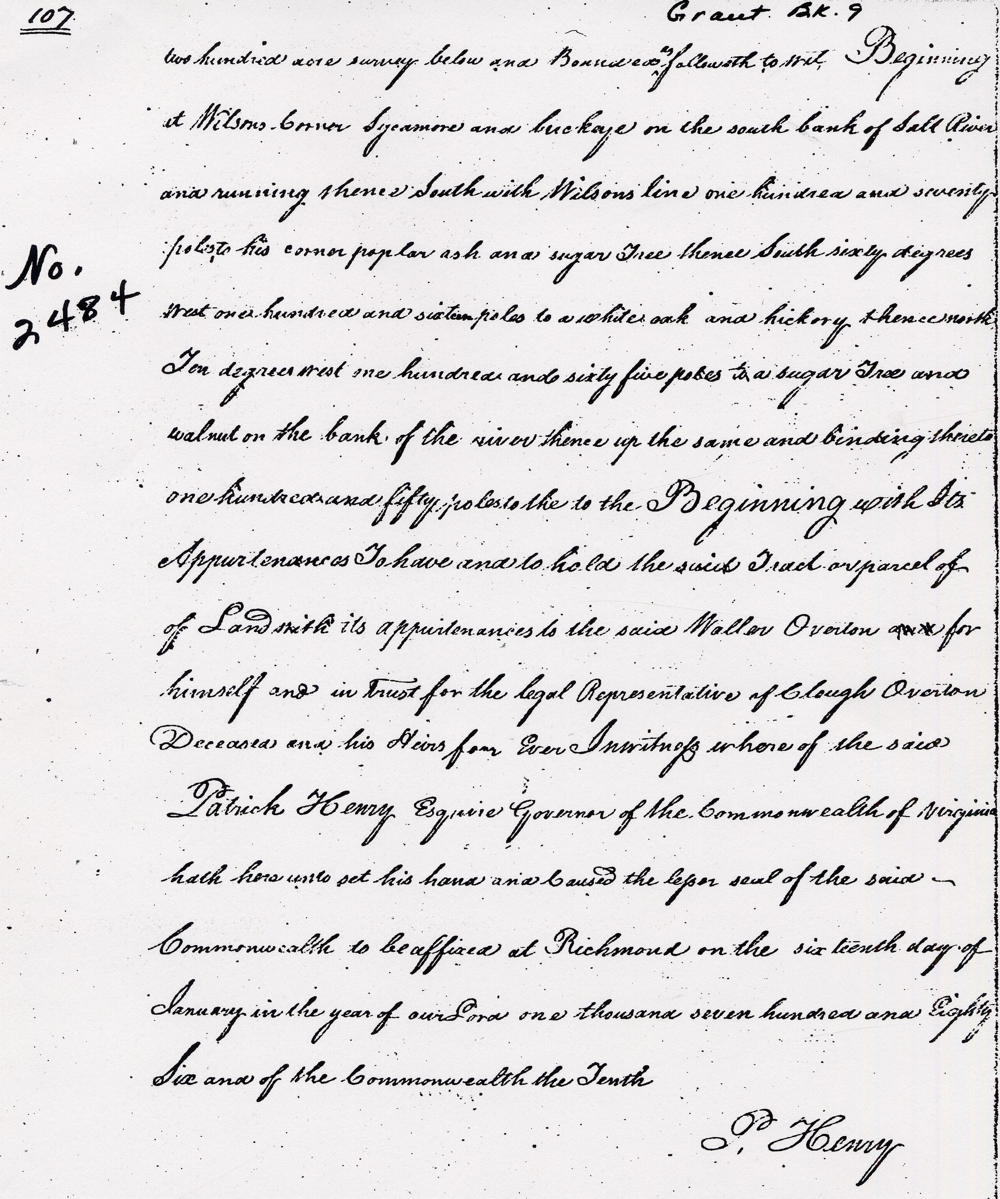 107
Grant Bk. 9
two hundred acre survey below and Bounded as followeth to wit, Beginning
at Wilsons Corner Sycamore and buckeye on the south bank of Salt River
and running thence South with Wilsons line one hundred and seventy
poles to his corner poplar ash and sugar Tree thence South sixty degrees
No.
2484
west one hundred and sixteen poles to a white oak and hickory thence north
Ten degrees west one hundred and sixty five poles to a sugar Tree and
walnut on the bank of the river thence up the same and binding thereto
one hundred and fifty poles to the to the Beginning with Its
Appurtenances To have and to hold the said Tract or parcel of
of Land with its appurtenances to the said Waller Overton for
himself and in trust for the legal Representative of Clough Overton
Deceased and his Heirs for Ever In witness where of the said
Patrick Henry Esquire Governor of the Commonwealth of Virginia
hath here unto set his hand and Caused the lesser seal of the said
Commonwealth to be affixed at Richmond on the sixteenth day of
January in the year of our Lord one thousand seven hundred and Eighty
Six and of the Commonwealth the Tenth
P. Henry